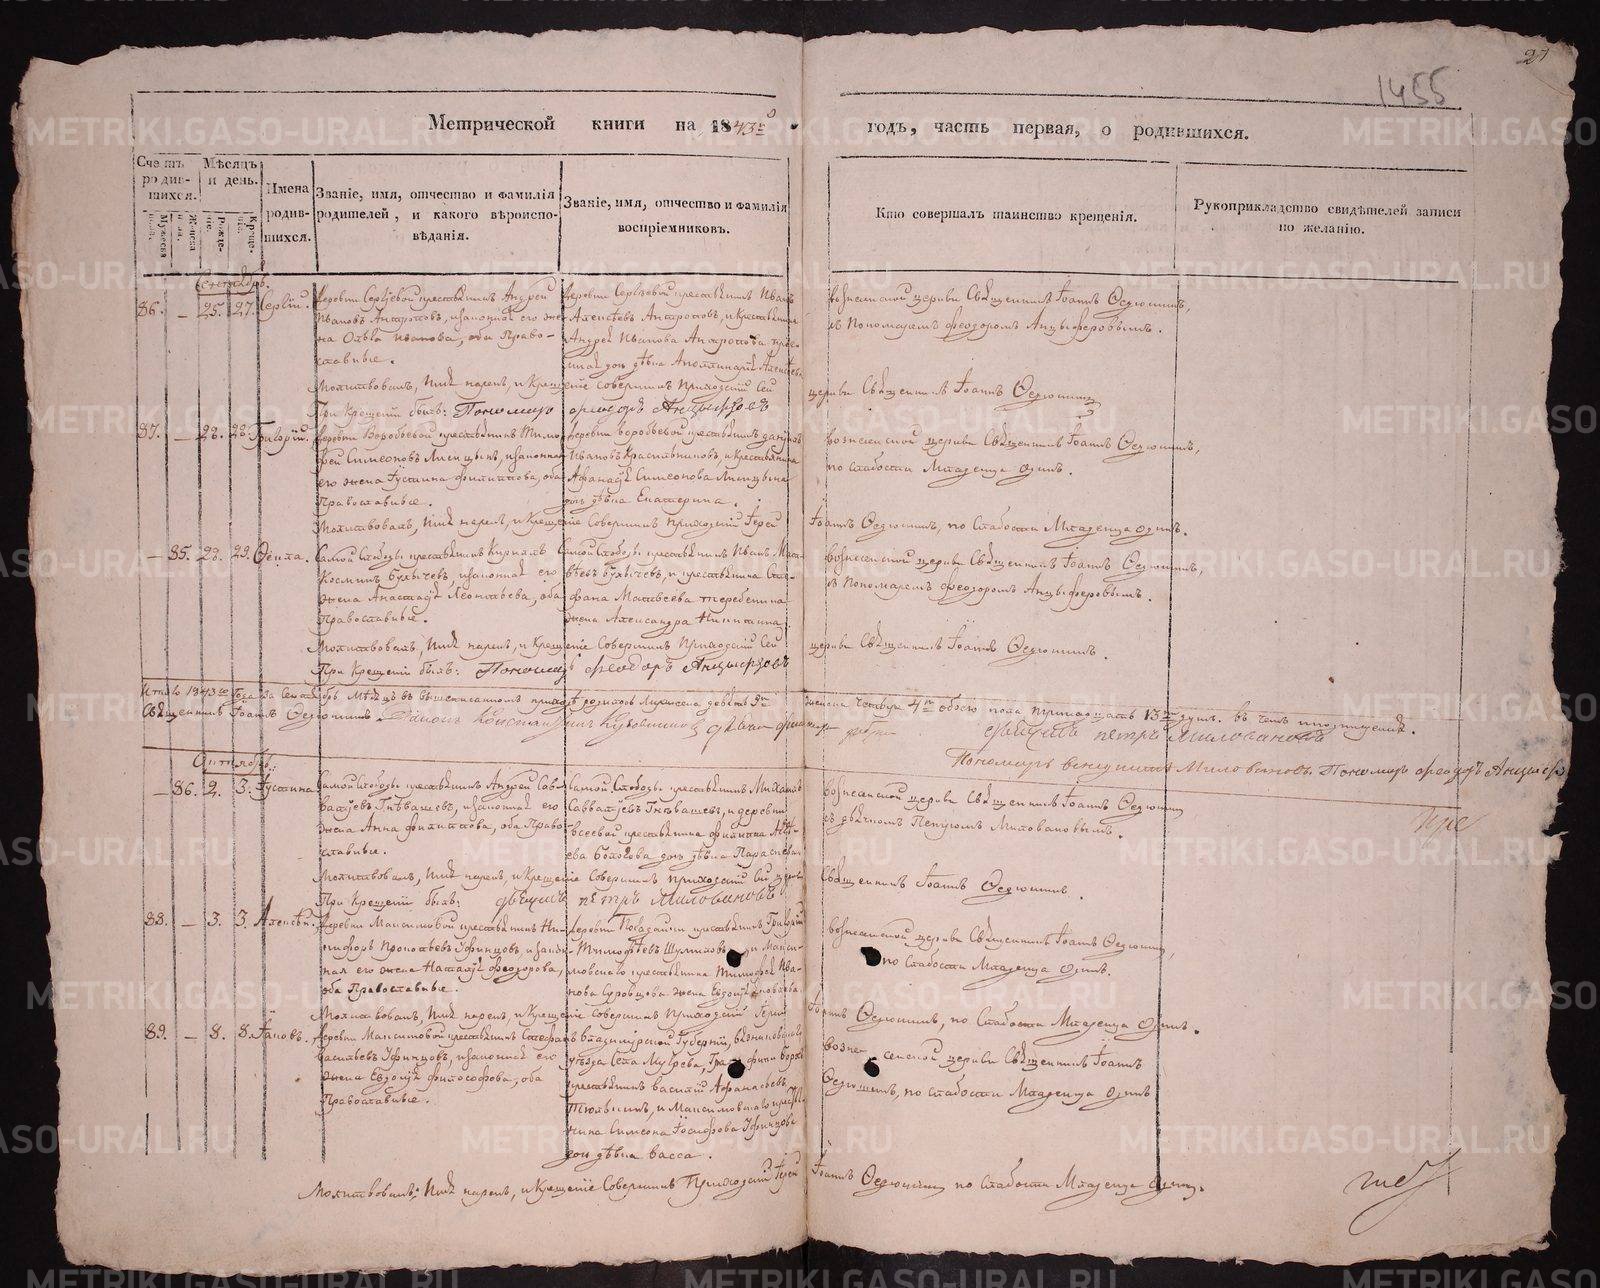 27
1455
Метрической книги на 1843й годъ, часть первая, о родившихся.
Счетъ родившихся.
Мѣсяцъ и день.
Имена родившихся.
Званіе, имя, отчество и фамилія родителей, и какого вѣроисповѣданія.
Званіе, имя, отчество и фамилія воспріемниковъ.
Кто совершалъ таинство крещенія.
Рукоприкладство свидѣтелей записи по желанію.
Мужеска
Женска
Рожденіе.
Крещеніе.
Сентябрь.
86. – 25. 27. Сергій.
Деревни Сергѣевой крестьянинъ Андрей
Ивановъ Антроповъ, и законная его же-
на Ольга Иванова, оба Право-
славные.
Деревни Сергѣевой крестьянинъ Иванъ
Алексѣевъ Антроповъ, и крестьянина
Андрея Иванова Антропова
дочь дѣвица Апполинарія Алексѣева
Вознесенской церкви Священникъ Іоаннъ Ѳедюшинъ,
съ Пономаремъ Феодоромъ Анцыферовымъ.
Молитвовалъ, имя нарекъ, и Крещеніе совершилъ Приходскій Сей церкви Священникъ Іоаннъ Ѳедюшинъ
При Крещеніи былъ: Пономарь Феодоръ Анцыферовъ
87. – 28. 28. Григорій.
Деревни Воробьевой крестьянинъ Тимо-
фей Симеоновъ Лисицынъ, и законная
его жена Іустина Филиппова, оба
Православные.
Деревни Воробьевой крестьянинъ
Ивановъ Красильниковъ, и крестьянина
Афанасія Симеонова Лисицына
дочь дѣвица Екатерина.
Вознесенской церкви Священникъ Іоаннъ Ѳедюшинъ,
по слабости Младенца одинъ.
Молитвовалъ, имя нарекъ, и Крещеніе совершилъ приходскій Іерей Іоаннъ Ѳедюшинъ, по слабости Младенца одинъ.
– 85. 28. 29. Ѳекла.
Самой Слободы крестьянинъ Кириллъ
Косминъ Булычевъ, и законная его
жена Анастасія Леонтьева, оба
Православные.
Самой Слободы крестьянинъ Иванъ Мат-
вѣевъ Булычевъ, и крестьянина Сте-
фана Матвѣева Теребенина
жена Александра Никитина
Вознесенской церкви Священникъ Іоаннъ Ѳедюшинъ,
съ Пономаремъ Феодоромъ Анцыферовымъ.
Молитвовалъ, имя нарекъ, и Крещеніе Совершилъ Приходскій Сей церкви Священникъ Іоаннъ Ѳедюшинъ.
При Крещеніи былъ: Пономарь Феодоръ Анцыферовъ
Итого 1843го Года за Сентябрь Мѣсяцъ въ вышеписанномъ приходѣ родилось Мужеска девять 9ть Женска четыре 4ре обоего пола тринадцать 13ть душъ.
Священникъ Іоаннъ Ѳедюшинъ.
дьячекъ петръ Миловановъ
Пономарь Миловановъ. Пономарь феодоръ Анцыферовъ
Октябрь:
– 86. 2. 3. Іустина
Самой Слободы крестьянинъ Андрей Сав-
ватіевъ Гнѣвашевъ, и законная его
жена Анна Филиппова, оба Право-
славные.
Самой Слободы крестьянинъ Михаилъ
Савватіевъ Гнѣвашевъ, и деревни
крестьянина Филиппа
дочь дѣвица Параскева
Вознесенской церкви Священникъ Іоаннъ Ѳедюшинъ
съ дьячкомъ Петромъ Миловановымъ.
Молитвовалъ, имя нарекъ, и Крещеніе Совершилъ приходскій Священникъ Іоаннъ Ѳедюшинъ.
При Крещеніи былъ: дьячекъ петръ Миловановъ
88. – 3. 3. Алексѣй.
Деревни Максимовой крестьянинъ Ни-
кифоръ Прокопьевъ Уфинцовъ, и закон-
ная его жена Наталья Феодорова,
оба Православные.
Деревни крестьянинъ Григорій
Тимофѣевъ Шулиховъ, и Макси-
мовскаго крестьянина Тимофея Ива-
нова Суровцова жена Евдокія
Вознесенской церкви Священникъ Іоаннъ Ѳедюшинъ,
по слабости Младенца одинъ.
Молитвовалъ, имя нарекъ, и Крещеніе совершилъ Приходскій Іерей Іоаннъ Ѳедюшинъ, по Слабости Младенца одинъ.
89. – 8. 8. Іаковъ.
Деревни Максимовой крестьянинъ Стефанъ
Васильевъ Уфинцовъ, и законная его
жена Евдокія Философова, оба
Православные.
Владимірской Губерніи, Вязниковскаго
уѣзда Села Мугрѣева,
крестьянинъ Василій Афанасьевъ
и Максимовскаго крестья-
нина Симеона Іосифова Уфинцова
дочь дѣвица Васса.
Вознесенской церкви Священникъ Іоаннъ
Ѳедюшинъ, по слабости Младенца одинъ
Молитвовалъ: имя нарекъ, и Крещеніе Совершилъ Приходскій Іерей Іоаннъ Ѳедюшинъ по Слабости Младенца одинъ.
METRIKI.GASO-URAL.RU